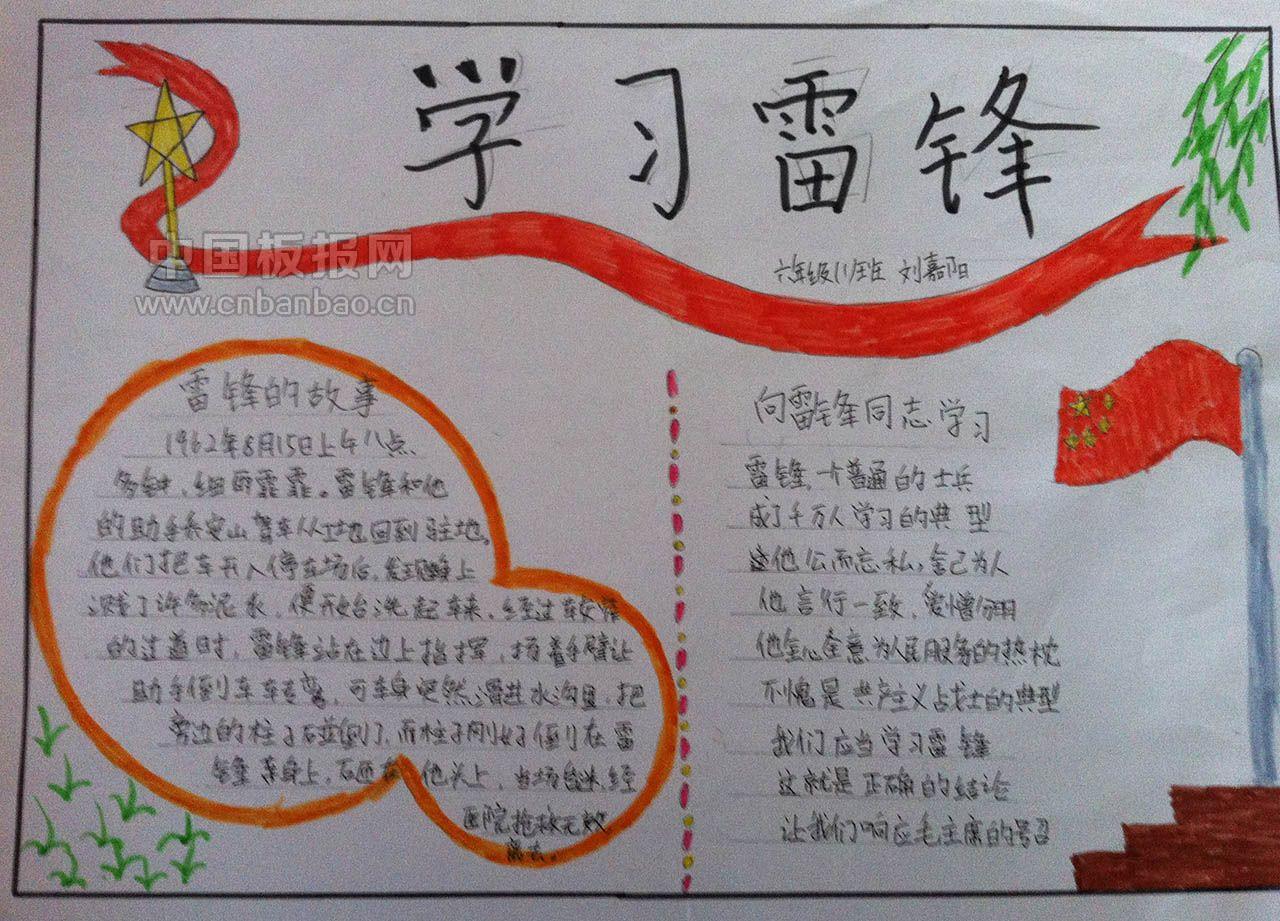 学习雷锋
六年级(1)班 刘嘉阳
中国板报网
www.cnbanbao.cn
雷锋的故事
1962年8月15日上午八点
多钟，细雨霏霏。雷锋和他
的助手乔安山驾车从工地回到驻地。
他们把车开入停车场后，发现车上
溅了许多泥水，便开始洗起车来。经过
的过道时，雷锋站在边上指挥，扬着手臂让
助手倒车转弯，可车身突然滑进水沟里，把
旁边的柱子碰倒了，而柱子刚好倒在雷
锋 身上，砸在他头上，当场 经
医院抢救无效
离去。
向雷锋同志学习
雷锋，一个普通的士兵
成了千万人学习的典型
这他公而忘私，舍己为人
他言行一致，爱憎分明
他全心全意为人民服务的热忱
不愧是共产主义战士的典型
我们应当学习雷锋
这就是正确的结论
让我们响应毛主席的号召